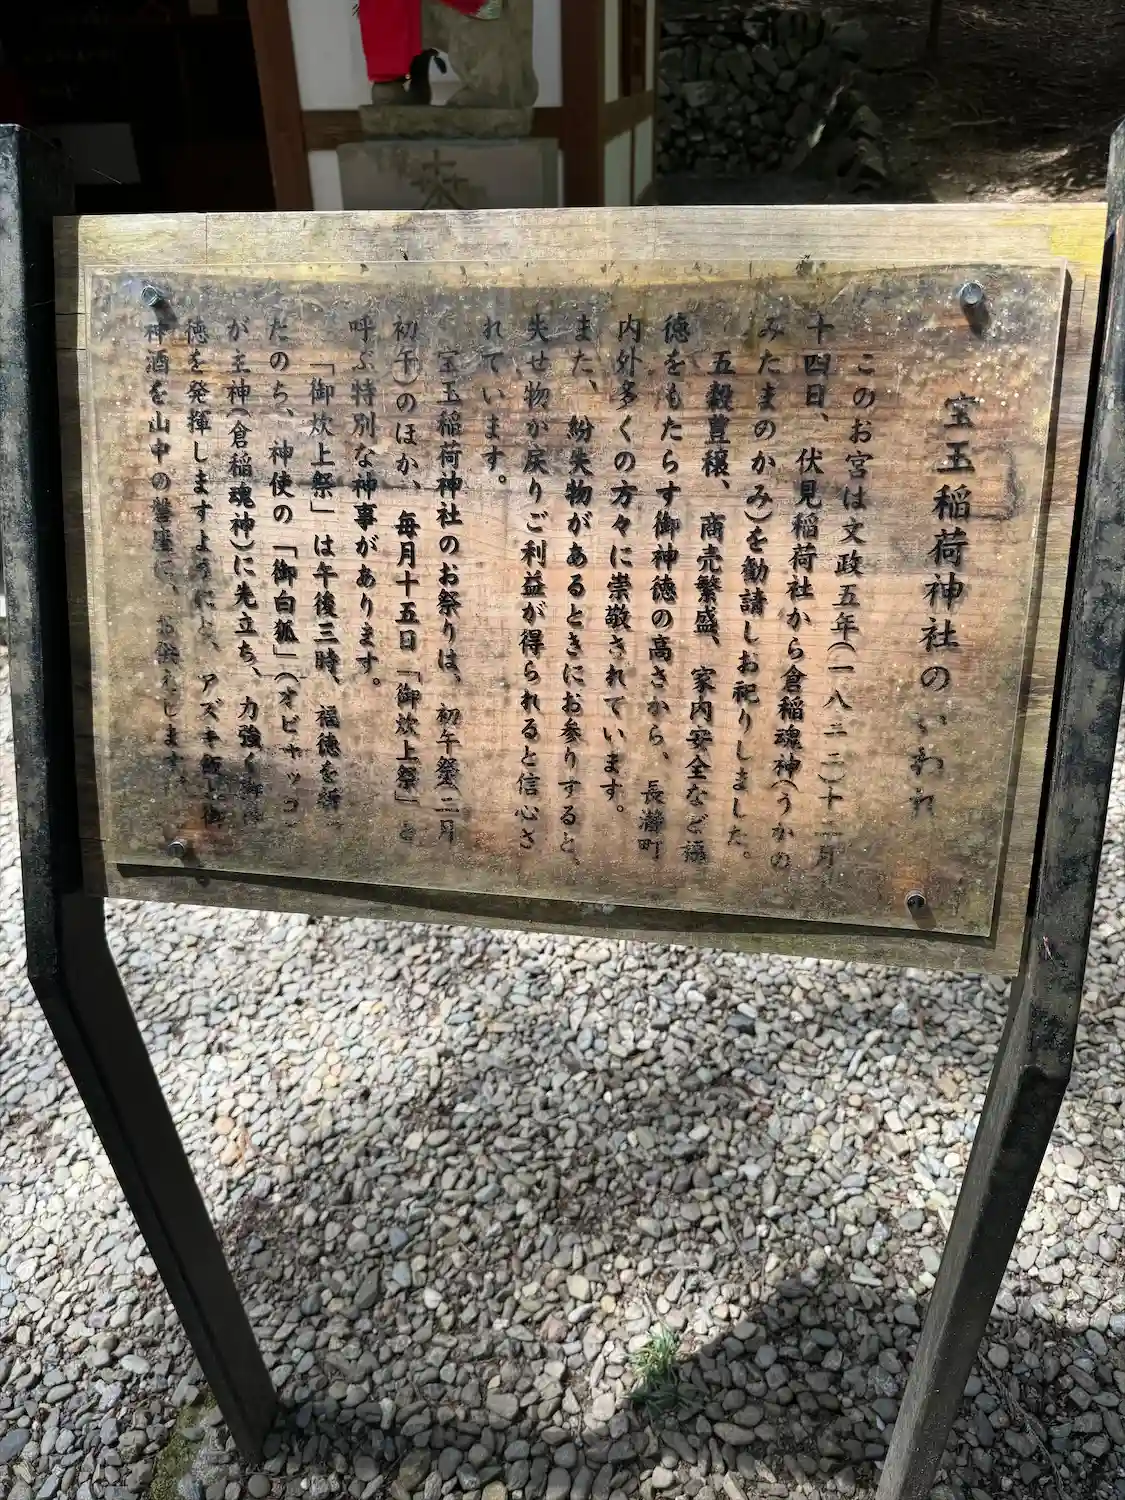 宝玉稲荷神社のいわれ
このお宮は文政五年(一八二二)十二月
十四日、伏見稲荷社から倉稲魂神(うかの
みたまのかみ)を勧請しお祀りしました。
五穀豊穣、商売繁盛、家内安全など福
徳をもたらす御神徳の高さから、長瀞町
内外多くの方々に崇敬されています。
また、紛失物があるときにお参りすると、
失せ物が戻りご利益が得られると信心さ
れています。
宝玉稲荷神社のお祭りは、初午祭(二月
初午)のほか、毎月十五日「御炊上祭」と
呼ぶ特別な神事があります。
「御炊上祭」は午後三時、福徳を
たのち、神使の「御白狐」(オビャッコ
が主神(倉稲魂神)に先立ち、力強く
徳を発揮しますようにと、アズキ飯と御
神酒を山中の に、お供えします。